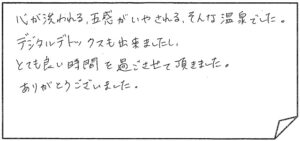 心が洗われる、五感がいやされる、そんな温泉でした。
デジタルデトックスも出来ましたし、
とても良い時間を過ごさせて頂きました。
ありがとうございました。